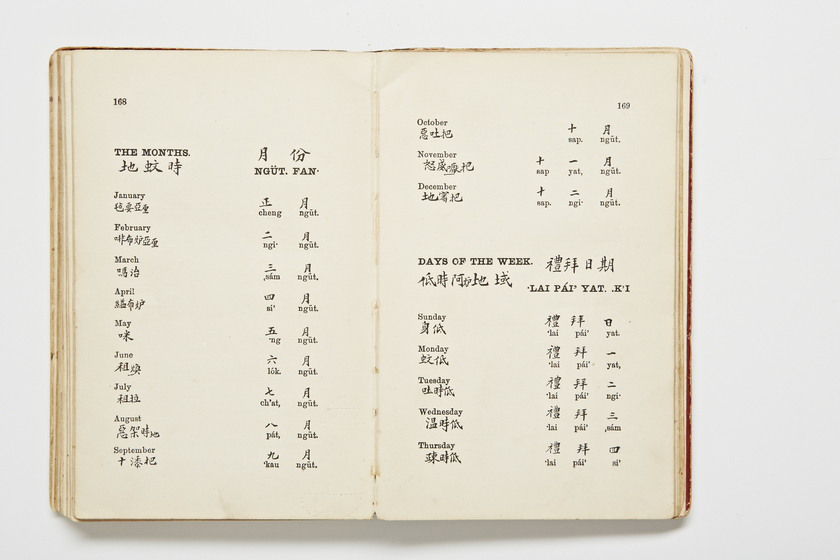 168
THE MONTHS. 月 份
地蚊時 NGÜT. FAN·
January 正 月
cheng ngüt.
February 二 月
啡布炉亞厘 ngi· ngüt.
March 三 月
嗎治 ,sám ngüt.
April 四 月
si' ngüt.
May 五 月
咪 ·ng ngüt.
June 六 月
祖煥 lók. ngüt.
July 七 月
祖拉 ch'at, ngüt.
August 八 月
惡架時地 pát, ngüt.
September 九 月
十漆把 'kau ngüt.
169
October 十 月
惡吐把 sap. ngüt.
November 十 一 月
sap yat, ngüt.
December 十 二 月
地審把 sap. ngi· ngüt.
DAYS OF THE WEEK. 禮拜日期
低時阿炉地 域 ·LAI PÁI' YAT. .K'I
Sunday 禮 拜 日
身低 ·lai pái' yat.
Monday 禮 拜 一
蚊低 ·lai pái' yat,
Tuesday 禮 拜 二
吐時低 ·lai pái' ngi·
Wednesday 禮 拜 三
温時低 ·lai pái' ,sám
Thursday 禮 拜 四
疎時低 ·lai pái' si'